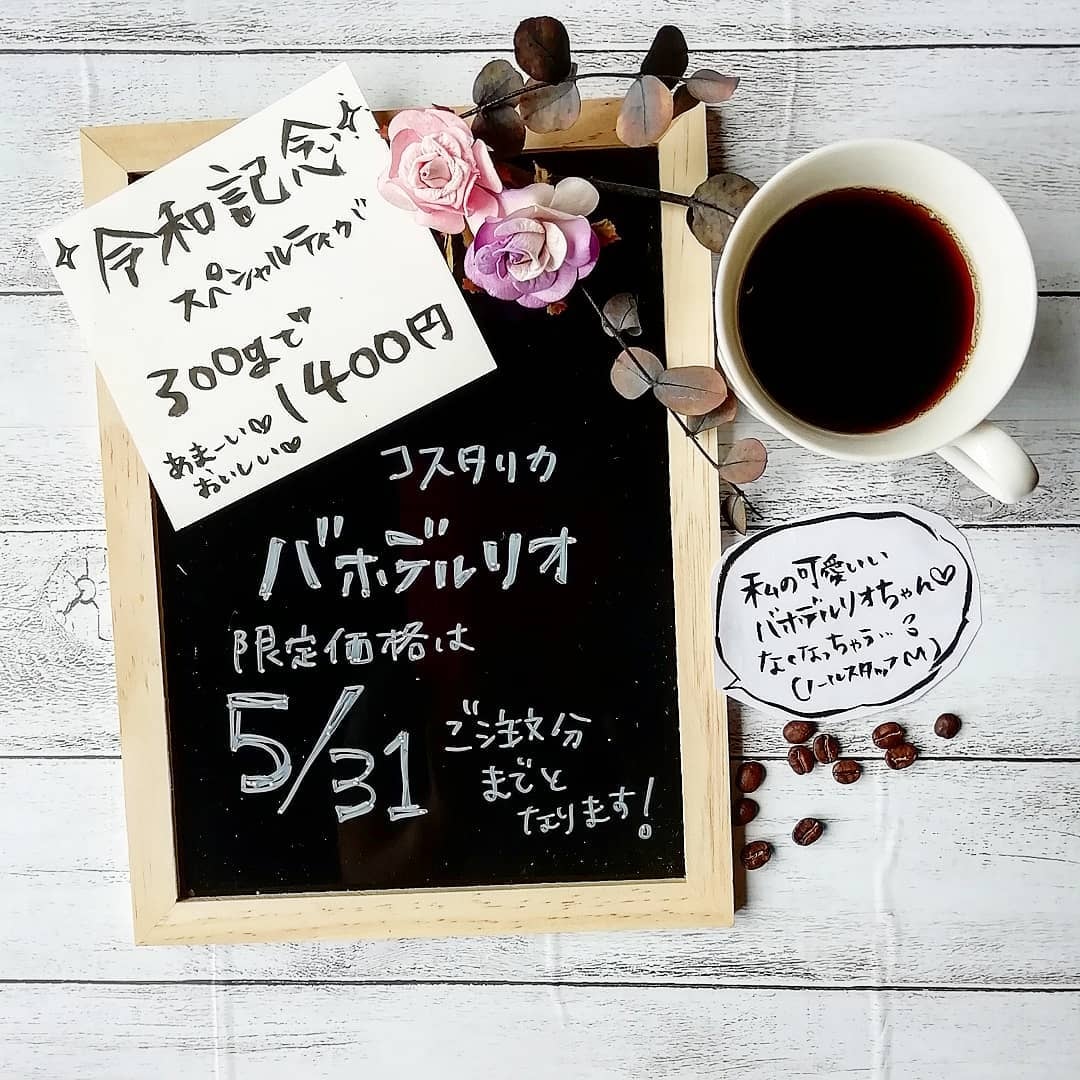 令和記念
スペシャルティが
300gで
1400円
あまーい♡
おいしい♡
コスタリカ
バホデルリオ
限定価格は
5/31
ご注文分
までと
なります!
私の可愛いい
バホデルリオちゃん♡
なくなっちゃう…
スタッフM)